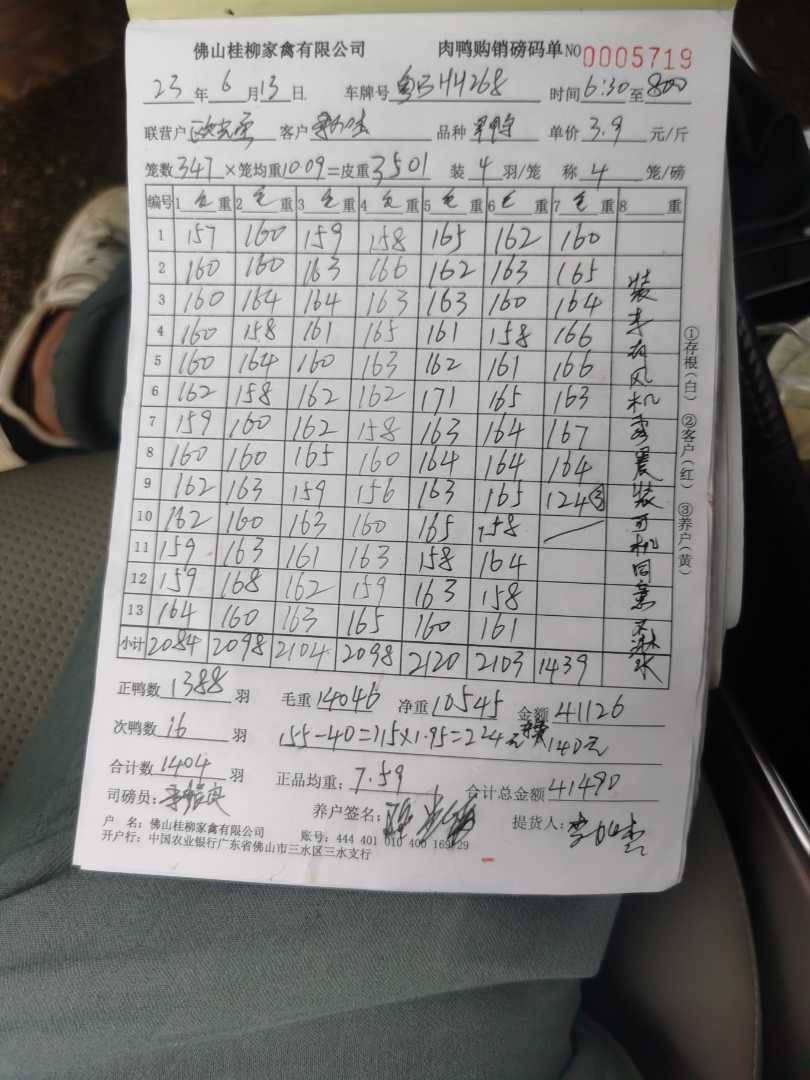 佛山桂柳家禽有限公司 肉鸭购销磅码单 NO 0005719
23年 6月 13日 车牌号 粤 H4268 时间 6:30 至 800
联营户 客户 品种 单价 3.9 元/斤
笼数 347 ×笼均重 10.09 =皮重 3501 装 4 羽/笼 称 4 笼/磅
编号 1 毛 重 2 毛 重 3 毛 重 4 毛 重 5 毛 重 6 毛 重 7 毛 重 8 重
1 157 160 159 158 165 162 160
2 160 160 163 166 162 163 165
3 160 164 164 163 163 160 164
4 160 158 161 165 161 158 166
5 160 164 160 163 162 161 166
6 162 158 162 162 171 165 163
7 159 160 162 158 163 164 167
8 160 160 165 160 164 164 164
9 162 163 159 156 163 165 124 ③
10 162 160 163 160 165 158 /
11 159 163 161 163 158 164
12 159 168 162 159 163 158
13 164 160 163 165 160 161
小计 2084 2098 2104 2098 2120 2103 1439
装车有风机 装 司机同意不淋水
①存根(白) ②客户(红) ③养户(黄)
正鸭数 1388 羽 毛重 14046 净重 10545 金额 41126
次鸭数 16 羽 155-40=115×1.95=224元 140元
合计数 1404 羽 正品均重: 7.59 合计总金额 41490
司磅员: 养户签名: 提货人:
户 名: 佛山桂柳家禽有限公司 账号: 444 401 010 400 169 29
开户行: 中国农业银行广东省佛山市三水区三水支行